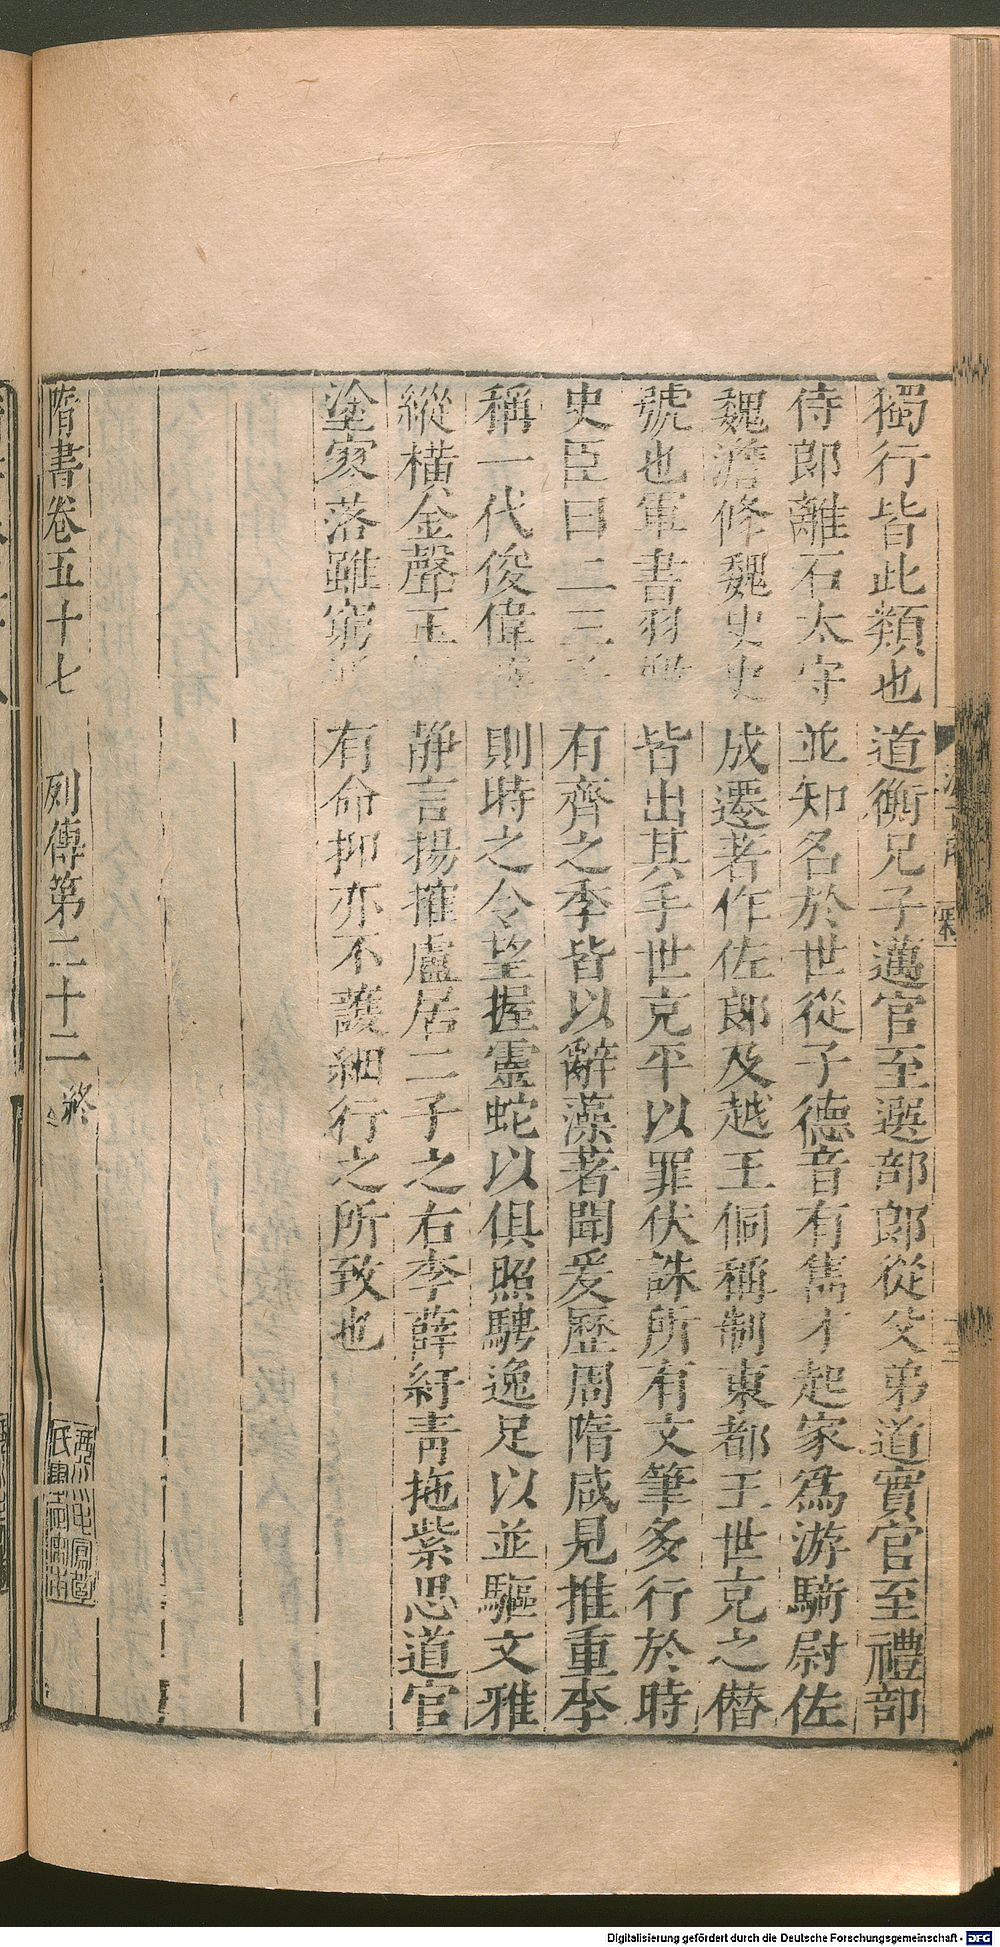 獨行皆此類也道衡兄子邁官至選部郎從父弟道實官至禮部
侍郎離石太守並知名於世從子德音有雋才起家爲游騎尉佐
魏澹修魏史史成遷著作佐郎及越王侗稱制東都王世克之僭
號也軍書羽檄皆出其手世克平以罪伏誅所有文筆多行於時
史臣曰二三子有齊之季皆以辭藻著聞爰歷周隋咸見推重李
稱一代俊偉則時之令望握靈蛇以俱照騁逸足以並驅文雅
縱橫金聲玉靜言揚搉盧居二子之右李薛紆靑拖紫思道官
塗寥落雖窮有命抑亦不護細行之所致也
隋書卷五十七 列傳第二十二 終
Digitalisierung gefördert durch die Deutsche Forschungsgemeinschaft - DFG